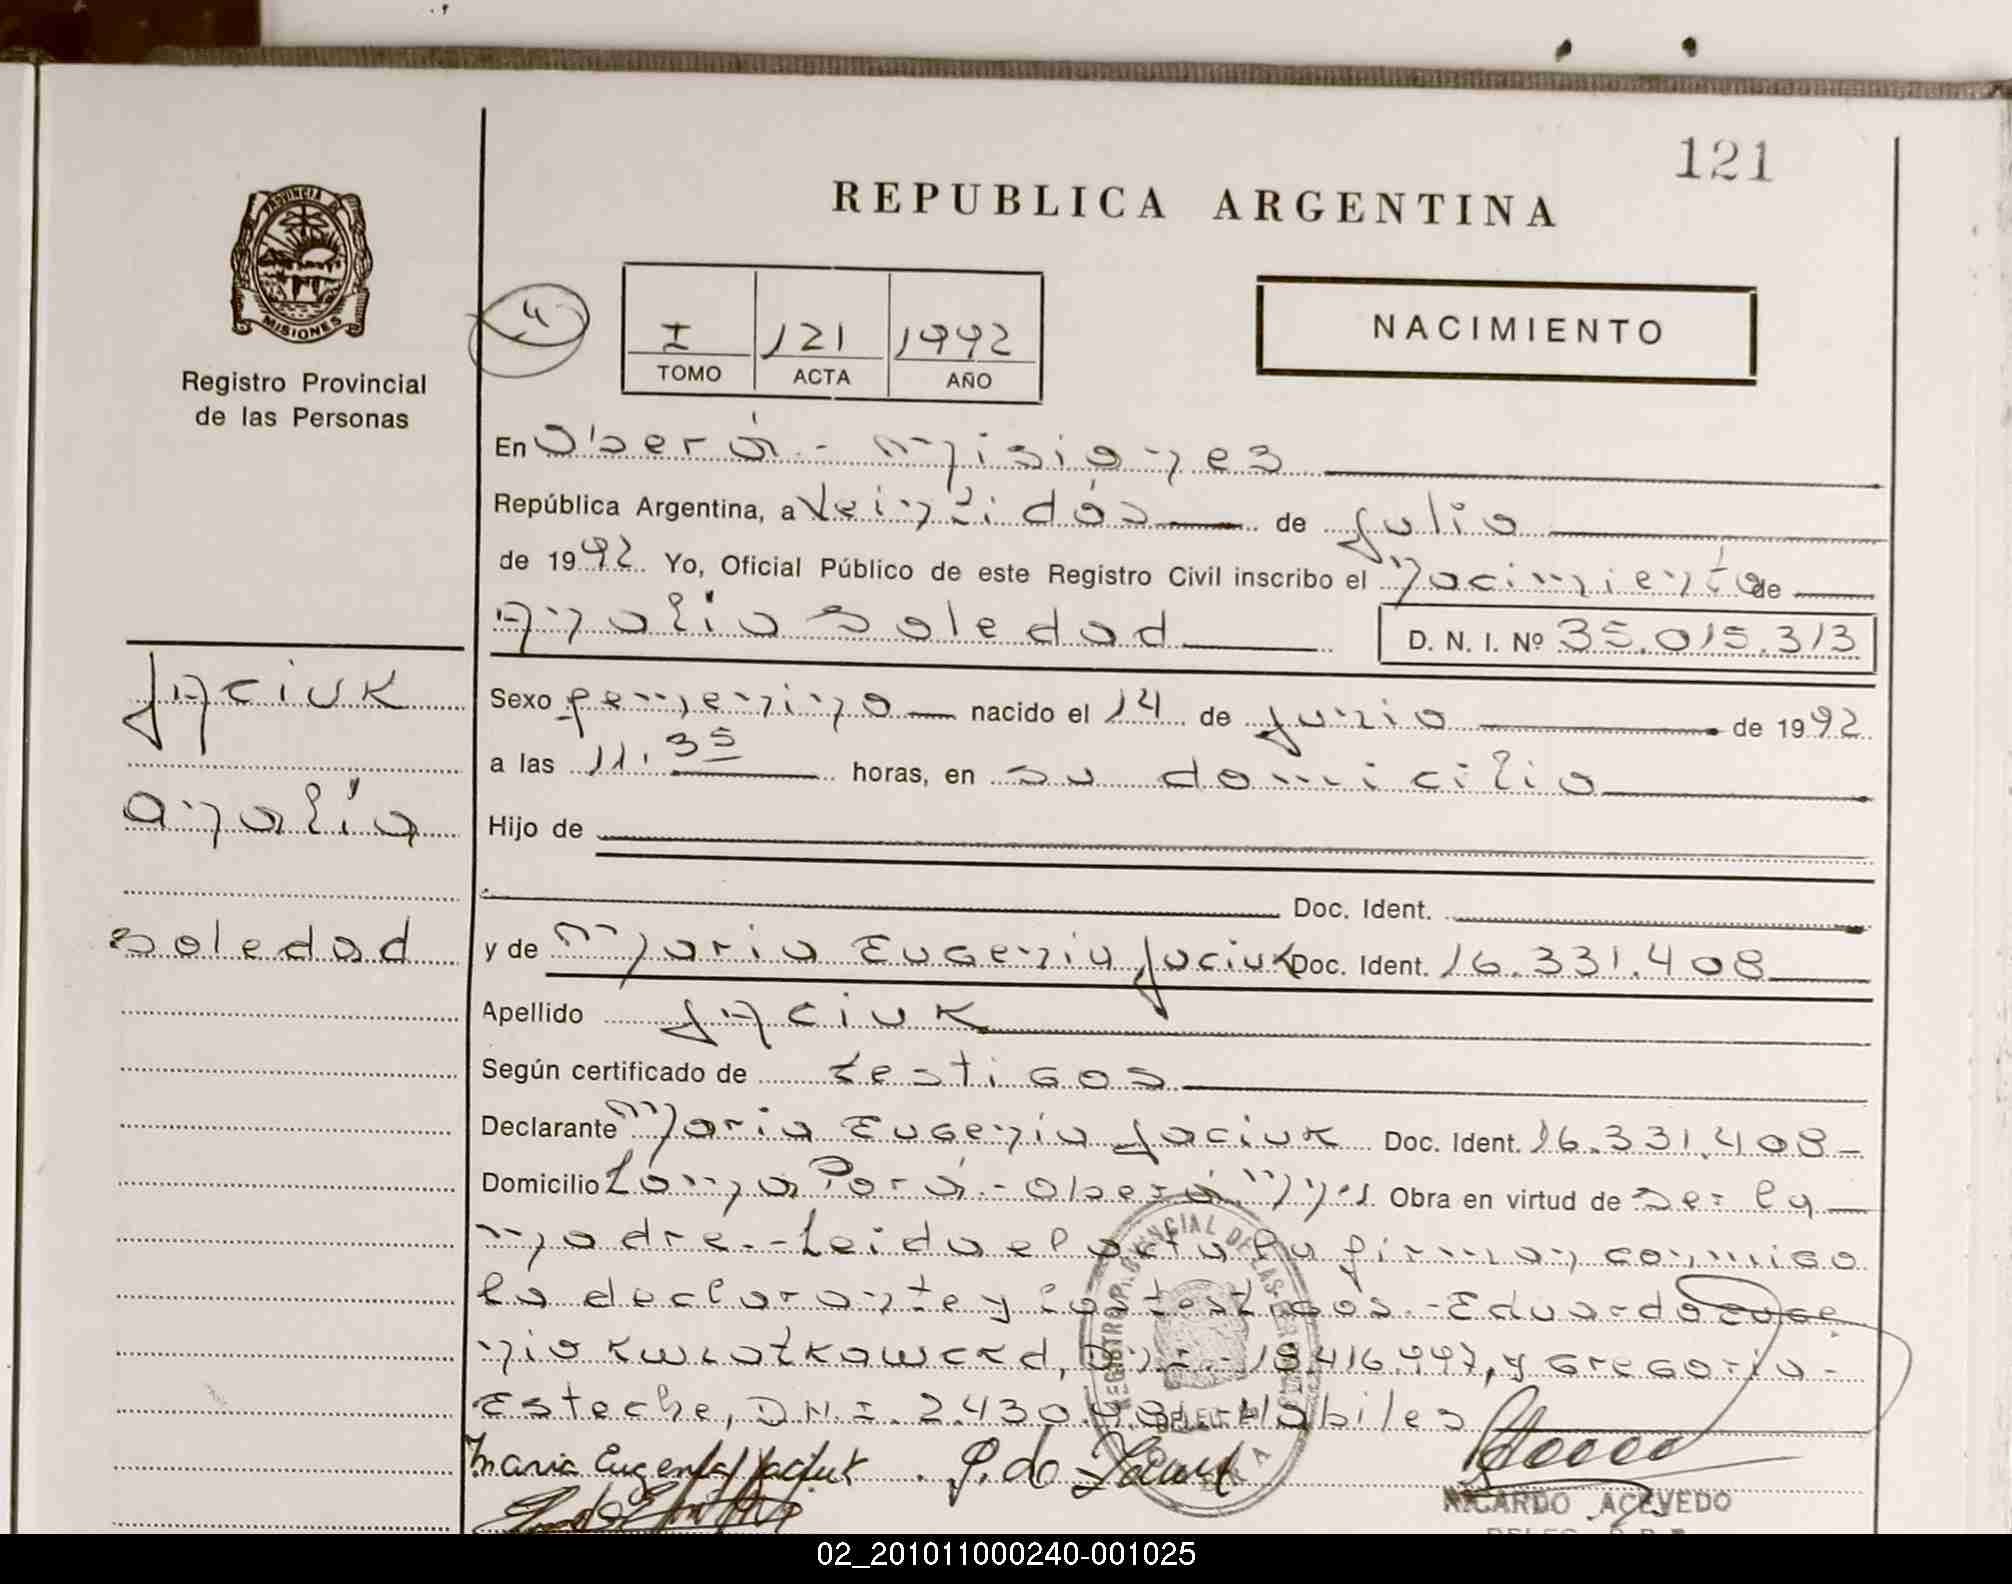 121
REPUBLICA ARGENTINA
PROVINCIA DE
MISIONES
Registro Provincial
de las Personas
4
I 121 1992
TOMO ACTA AÑO
NACIMIENTO
En Oberá - Misiones
República Argentina, a Veintidós de Julio
de 1992 Yo, Oficial Público de este Registro Civil inscribo el Nacimiento de
Analia Soledad D. N. I. Nº 35.015.313
Jaciuk
Analía
Soledad
Sexo femenino nacido el 14 de Junio de 1992
a las 11.35 horas, en su domicilio
Hijo de
Doc. Ident.
y de Maria Eugenia Jaciuk Doc. Ident. 16.331.408
Apellido JACIUK
Según certificado de testigos
Declarante Maria Eugenia Jaciuk Doc. Ident. 16.331.408-
Domicilio Loma Porá - Oberá Mnes. Obra en virtud de ser la
madre.- Leida el acta, la firman conmigo
la declarante y los testigos.- Eduardo Euge
nio DNI - 18.416.997, y Gregorio -
Esteche, DNI. 2.430. Habiles
Maria Eugenia Jaciuk
REGISTRO PROVINCIAL DE LAS PERSONAS
RICARDO ACEVEDO
02_201011000240-001025